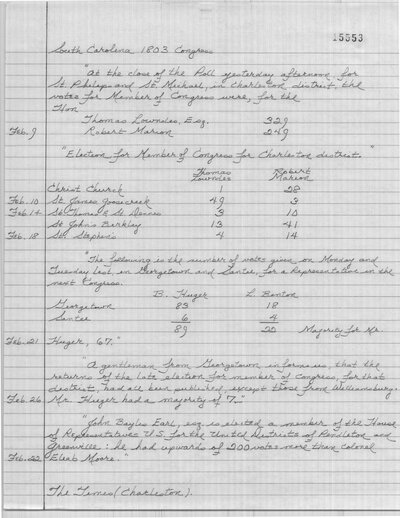 15553
South Carolina 1803 Congress
"At the close of the Poll yesterday afternoon for
St. Philips and St. Michael, in Charleston district, the
votes for Member of Congress were, for the
Hon
Thomas Lowndes, Esq. 329
Feb. 9 Robert Marion 249
"Election for Member of Congress for Charleston district."
Thomas Robert
Lowndes Marion
Christ Church 1 28
Feb. 10 St. James Goosecreek 49 3
Feb. 14 St. Thomas & St. Dennis 3 10
St John's Berkley 13 41
Feb. 18 St. Stephen's 4 14
"The following is the number of votes given on Monday and
Tuesday last, in Georgetown and Santee, for a Representative in the
next Congress.
B. Huger L. Benton
Georgetown 83 18
Santee 6 4
89 20 Majority for Mr.
Feb. 21 Huger, 67."
"A gentleman from Georgetown informs us, that the
returns of the late election for member of Congress for that
district had all been published, except those from Williamsburg.
Feb. 26 Mr. Huger had a majority of 7."
"John Bayles Earl, esq. is elected a member of the House
of Representatives U.S. for the United Districts of Pendleton and
Greenville: he had upwards of 200 votes more than Colonel
Feb. 22 Eleab Moore."
The Times (Charleston).